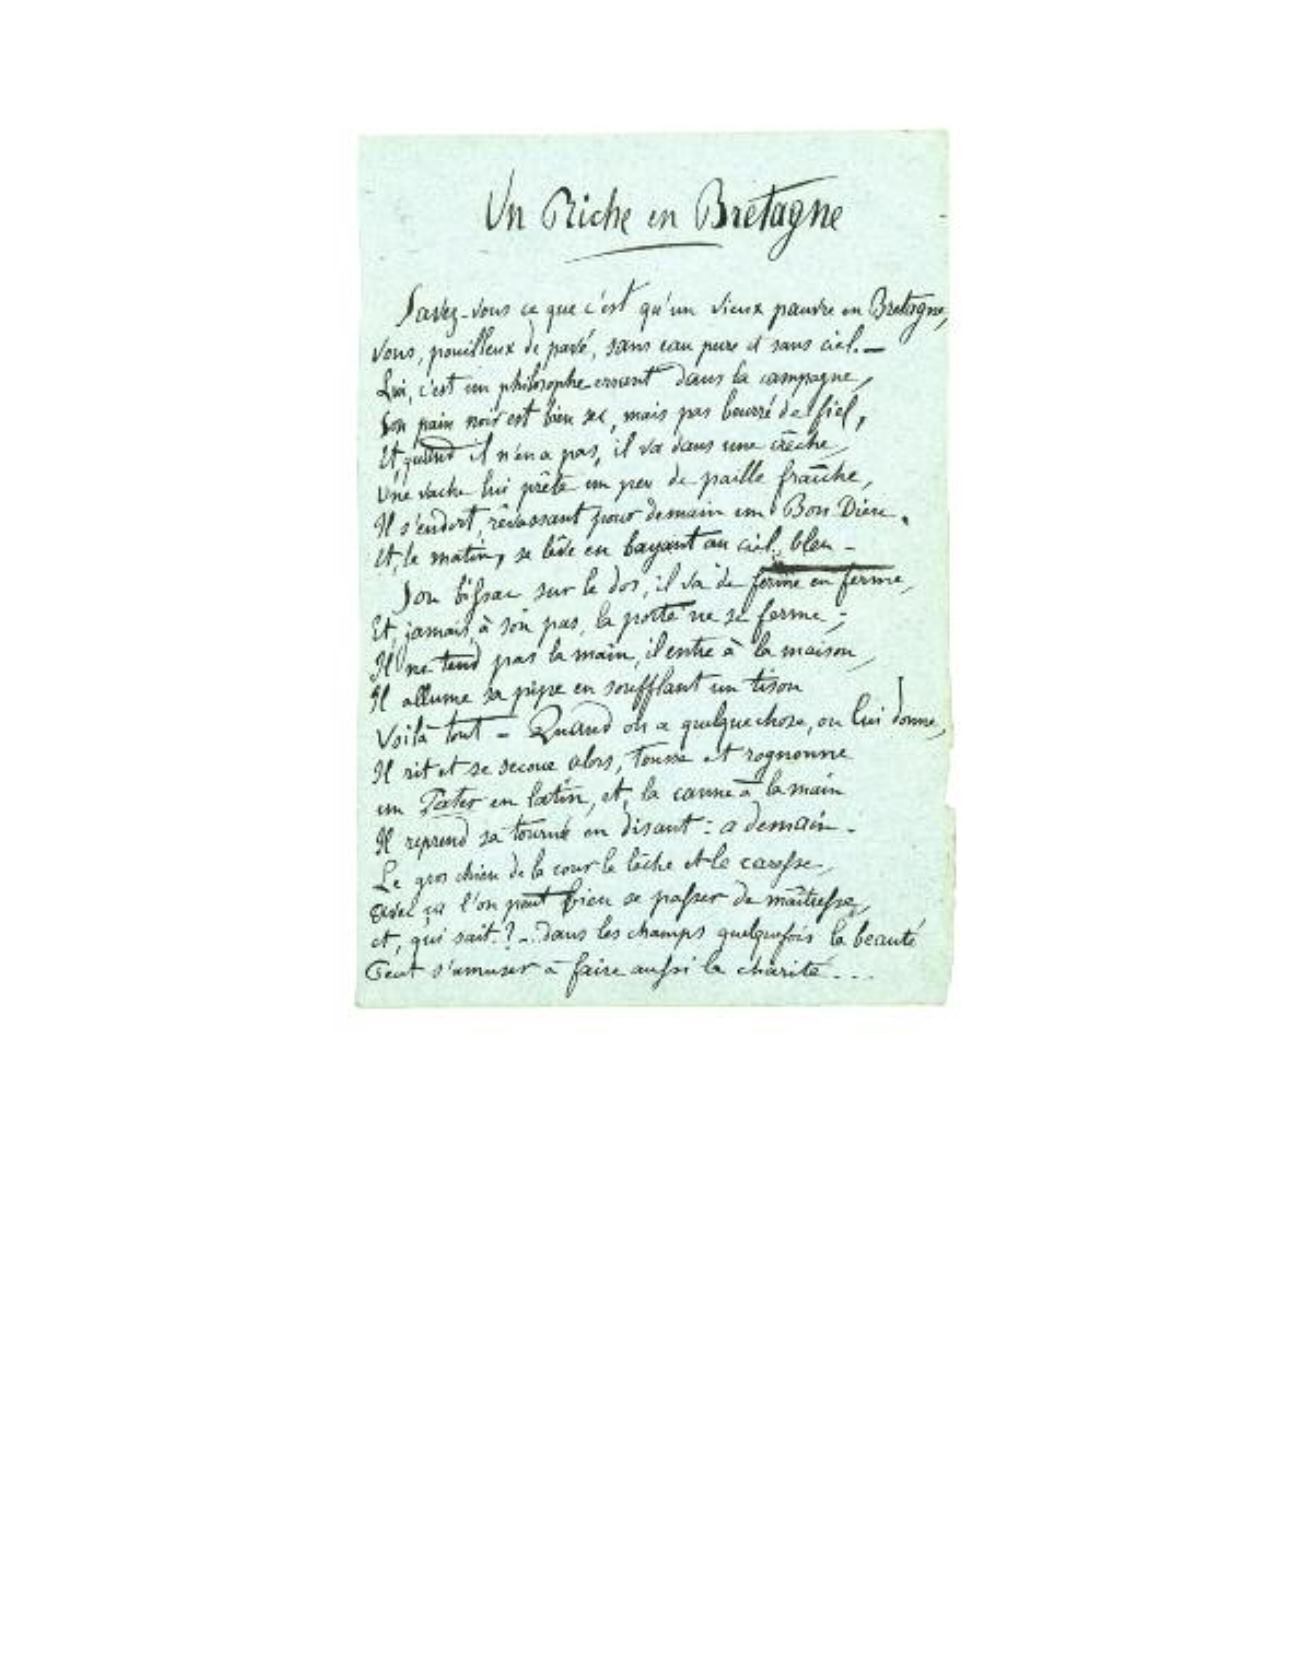 Un Riche en Bretagne
Savez-vous ce que c'est qu'un vieux pauvre en Bretagne,
Vous, pouilleux de pavé, sans eau pure et sans ciel. —
Lui, c'est un philosophe errant dans la campagne,
Son pain noir est bien sec, mais pas beurré de fiel,
Et, quand il n'en a pas, il va dans une crèche,
Une vache lui prête un peu de paille fraîche,
Il s'endort, rêvassant pour demain un Bon Dieu.
Et, le matin, se lève en bayant au ciel bleu —
Son bissac sur le dos, il va de ferme en ferme,
Et, jamais, à son pas, la porte ne se ferme ;
Il ne tend pas la main, il entre à la maison,
Il allume sa pipe en soufflant un tison
Voilà tout — Quand on a quelque chose, on lui donne,
Il rit et se secoue alors, tousse et rognonne
un Pater en latin, et, la canne à la main
Il reprend sa tournée en disant : a demain.
Le gros chien de la cour le lèche et le caresse,
avec ça l'on peut bien se passer de maîtresse,
et, qui sait ? — dans les champs quelquefois la beauté
Peut s'amuser à faire aussi la charité ...